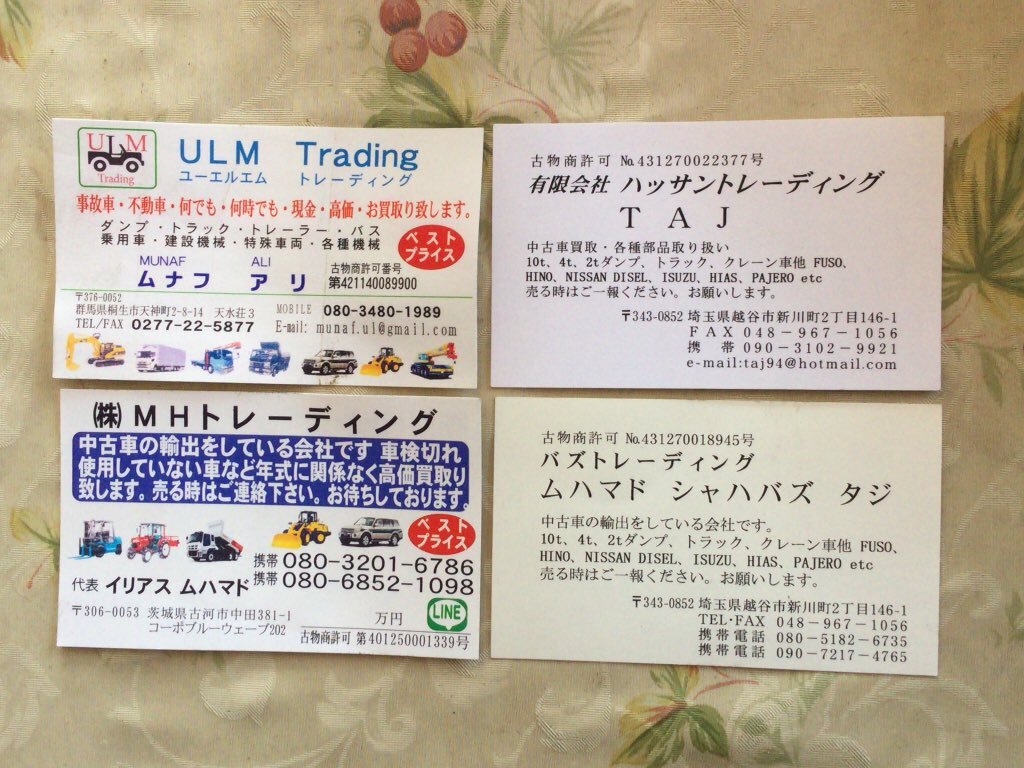 ULM
Trading
ULM Trading
ユーエルエム トレーディング
事故車・不動車・何でも・何時でも・現金・高価・お買取り致します。
ダンプ・トラック・トレーラー・バス
乗用車・建設機械・特殊車両・各種機械
ベスト
プライス
MUNAF ALI
ムナフ アリ
古物商許可番号
第421140089900
〒376-0052
群馬県桐生市天神町2-8-14 天水荘3
TEL/FAX 0277-22-5877
MOBILE 080-3480-1989
E-mail: munaf.ul@gmail.com
古物商許可 №431270022377号
有限会社 ハッサントレーディング
TAJ
中古車買取・各種部品取り扱い
10t、4t、2tダンプ、トラック、クレーン車他 FUSO、
HINO、NISSAN DISEL、ISUZU、HIAS、PAJERO etc
売る時はご一報ください。お願いします。
〒343-0852 埼玉県越谷市新川町2丁目146-1
FAX 048-967-1056
携 帯 090-3102-9921
e-mail:taj94@hotmail.com
㈱MHトレーディング
中古車の輸出をしている会社です 車検切れ
使用していない車など年式に関係なく高価買取り
致します。売る時はご連絡下さい。お待ちしております。
ベスト
プライス
携帯 080-3201-6786
携帯 080-6852-1098
代表 イリアス ムハマド
〒306-0053 茨城県古河市中田381-1
コーポブルーウェーブ202
万円
LINE
古物商許可 第401250001339号
古物商許可 №431270018945号
バズトレーディング
ムハマド シャハバズ タジ
中古車の輸出をしている会社です。
10t、4t、2tダンプ、トラック、クレーン車他 FUSO、
HINO、NISSAN DISEL、ISUZU、HIAS、PAJERO etc
売る時はご一報ください。お願いします。
〒343-0852 埼玉県越谷市新川町2丁目146-1
TEL・FAX 048-967-1056
携帯電話 080-5182-6735
携帯電話 090-7217-4765